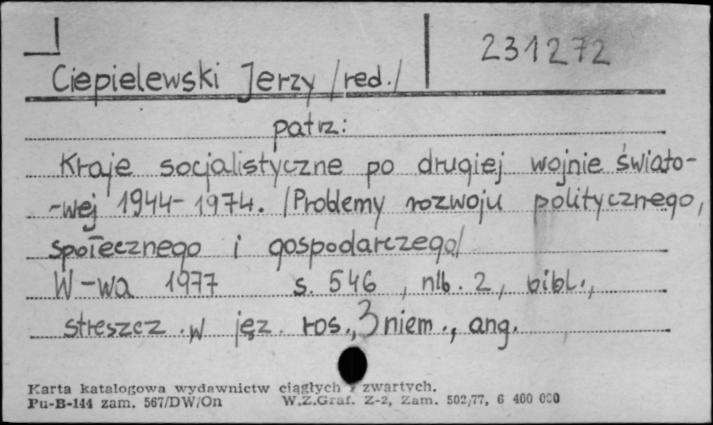 231272
Ciepielewski Jerzy /red./
patrz:
Kraje socjalistyczne po drugiej wojnie świato-
-wej 1944-1974. /Problemy rozwoju politycznego,
społecznego i gospodarczego/
W-wa 1977 s. 546, nlb. 2, bibl.,
streszcz. w jęz. ros., niem., ang.
Karta katalogowa wydawnictw ciągłych i zwartych.
Pu-B-144 zam. 567/DW/On W.Z.Graf. Z-2, Zam. 502/77, 6 400 000